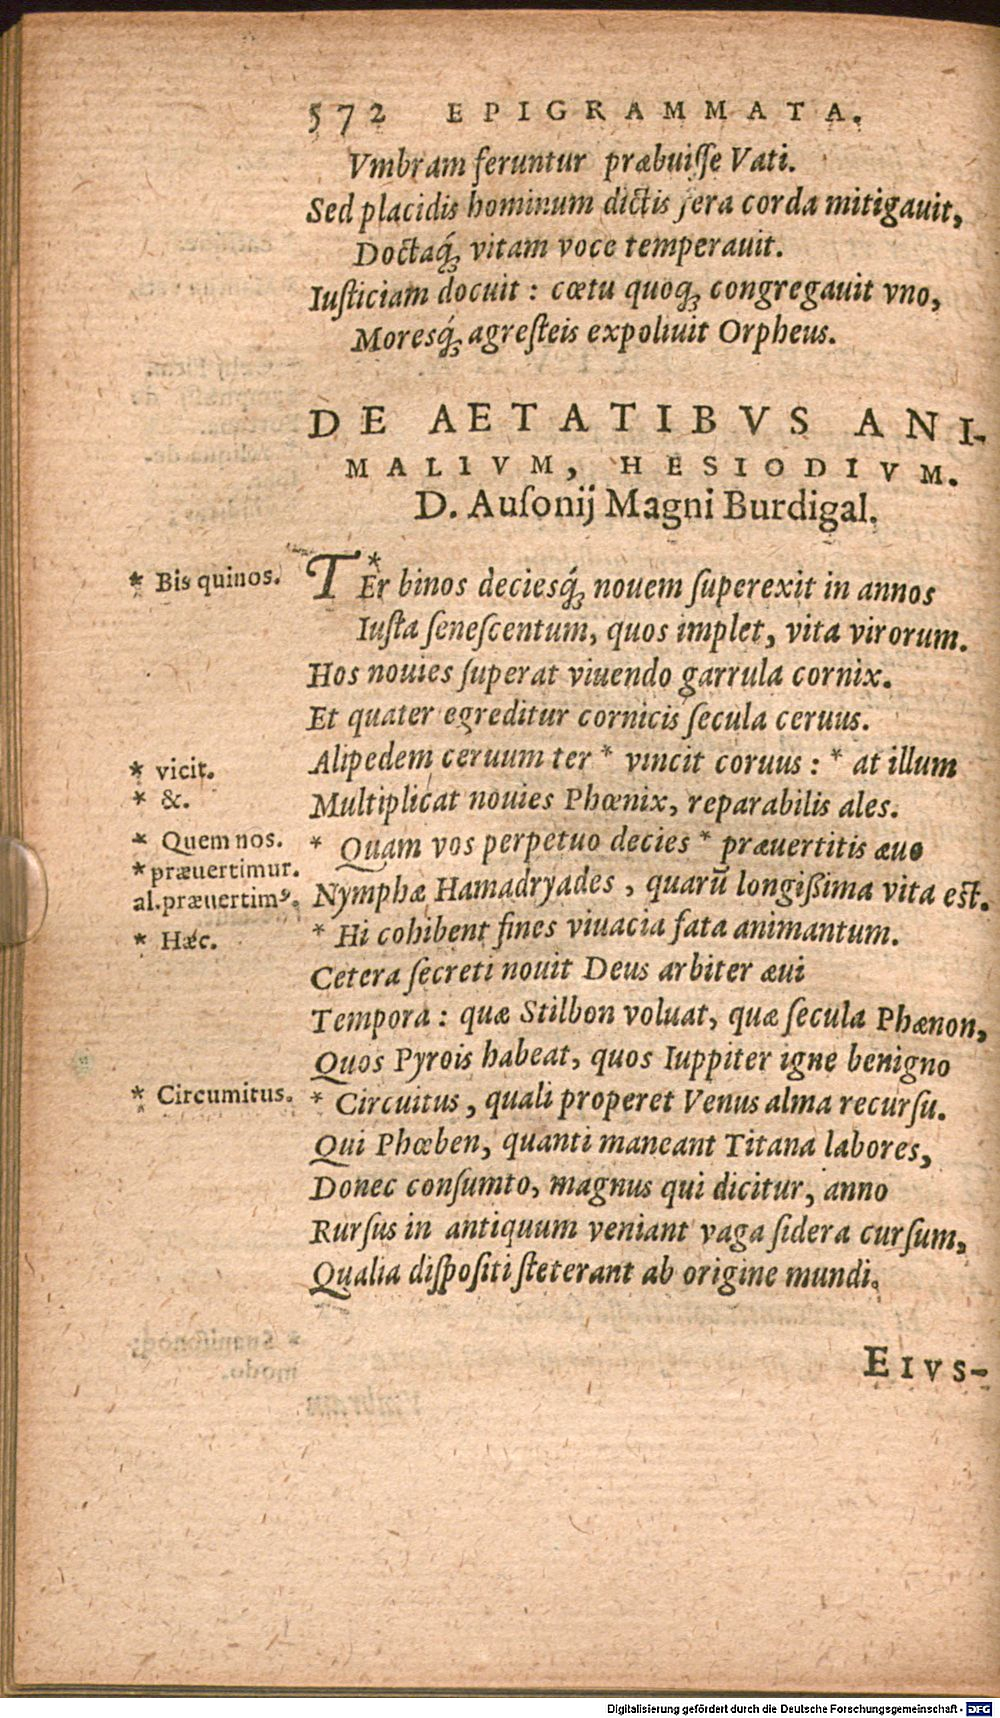 572 EPIGRAMMATA.
Vmbram feruntur præbuiſſe Vati.
Sed placidis hominum dictis fera corda mitigauit,
Doctaq́ꝫ vitam voce temperauit.
Iuſticiam docuit : cœtu quoqꝫ congregauit vno,
Moresq́ꝫ agreſteis expoliuit Orpheus.
DE AETATIBVS ANI-
MALIVM, HESIODIVM.
D. Auſonij Magni Burdigal.
* Bis quinos.
T*Er binos deciesq́ꝫ nouem ſuperexit in annos
Iuſta ſeneſcentum, quos implet, vita virorum.
Hos nouies ſuperat viuendo garrula cornix.
Et quater egreditur cornicis ſecula ceruus.
* vicit.
Alipedem ceruum ter * vincit coruus : * at illum
* &.
Multiplicat nouies Phœnix, reparabilis ales.
* Quem nos.
* Quam vos perpetuo decies * præuertitis æuo
* præuertimur.
al.præuertimꝰ.
Nymphæ Hamadryades , quarū longißima vita eſt.
* Hæc.
* Hi cohibent fines viuacia fata animantum.
Cetera ſecreti nouit Deus arbiter æui
Tempora : quæ Stilbon voluat, quæ ſecula Phænon,
Quos Pyrois habeat, quos Iuppiter igne benigno
* Circumitus.
* Circuitus , quali properet Venus alma recurſu.
Qui Phœben, quanti maneant Titana labores,
Donec conſumto, magnus qui dicitur, anno
Rurſus in antiquum veniant vaga ſidera curſum,
Qualia diſpoſiti ſteterant ab origine mundi.
EIVS-
Digitalisierung gefördert durch die Deutsche Forschungsgemeinschaft - DFG